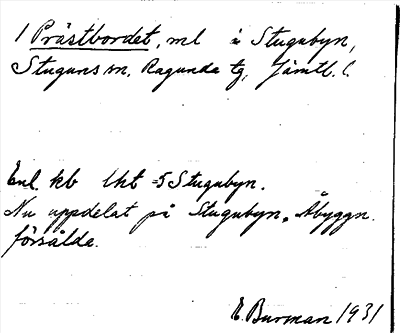 1 Prästbordet, ml i Stugubyn,
Stuguns sn, Ragunda tg, Jämtl. l.
Enl. kb lht =5 Stugubyn.
Nu uppdelat på Stugubyn. Åbyggn.
försålda.
E. Burman 1931